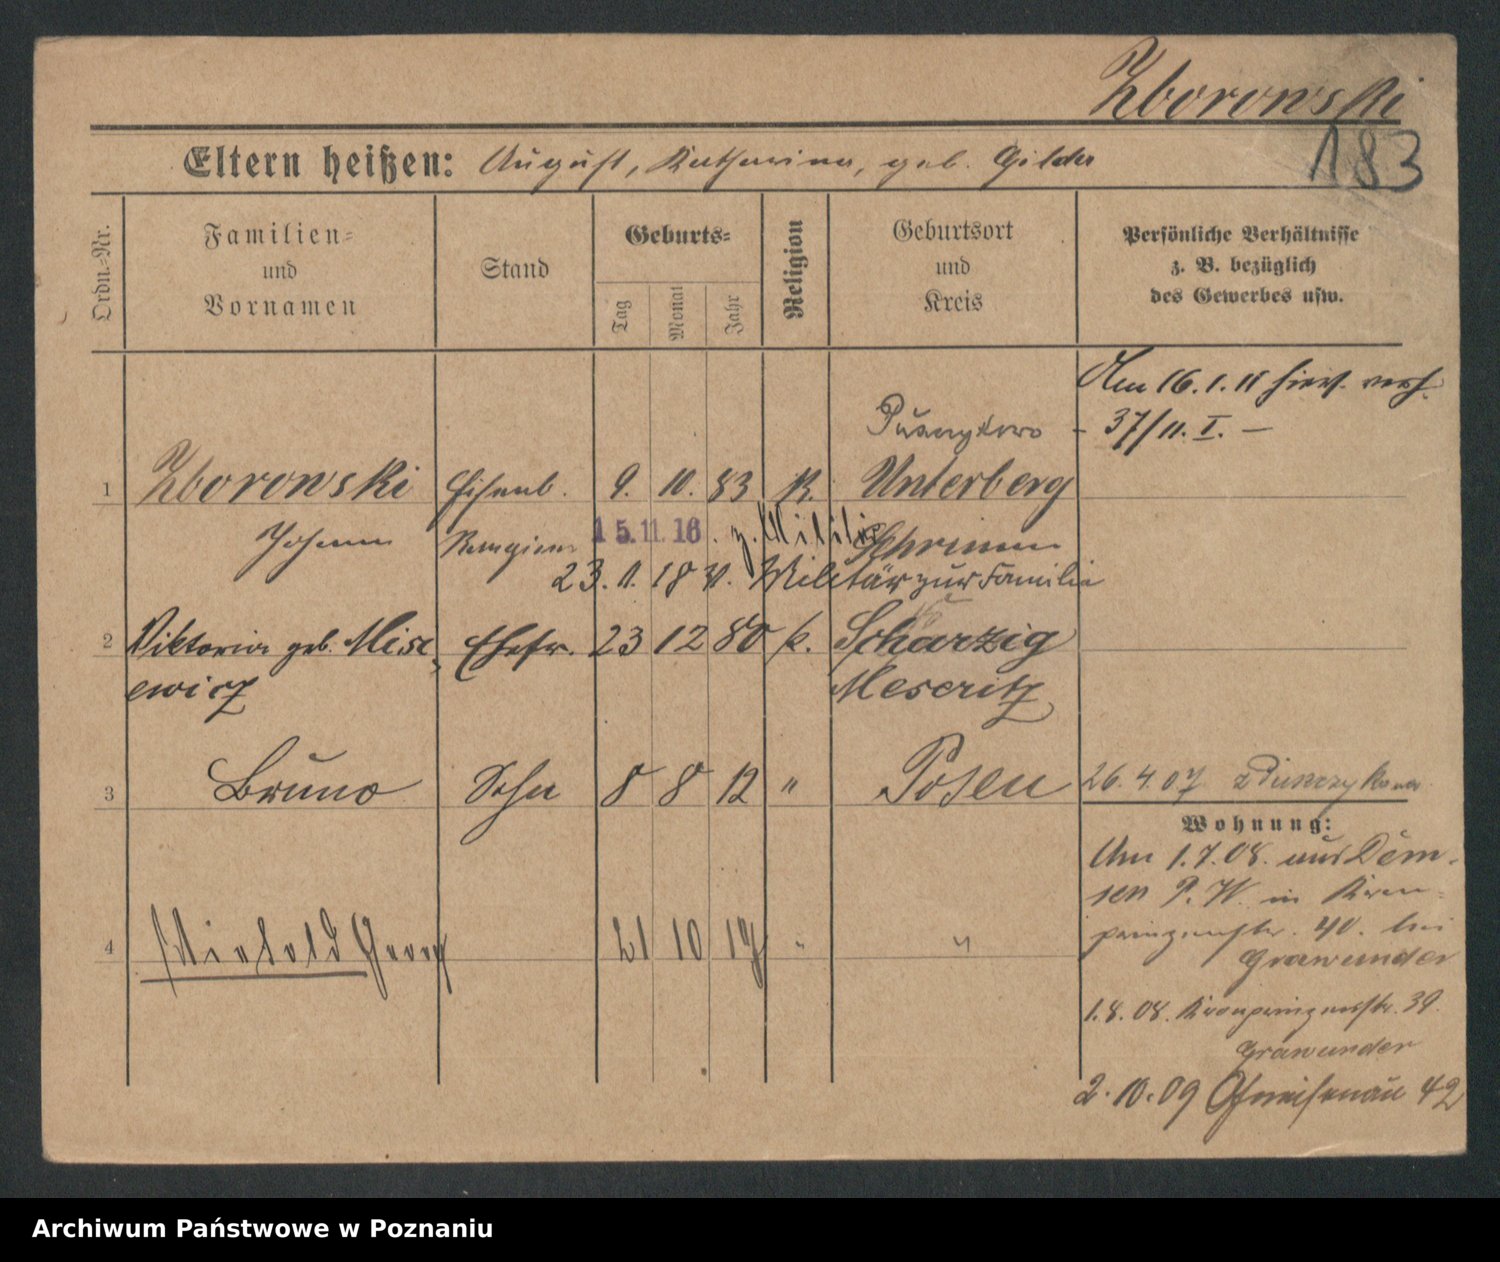 Zborowski
183
Eltern heißen: August, Katharina, geb. Gilda
Ordn.-Nr.
Familien-
und
Vornamen
Stand
Geburts-
Tag
Monat
Jahr
Religion
Geburtsort
und
Kreis
Persönliche Verhältnisse
z. B. bezüglich
des Gewerbes usw.
Am 16.1.11 hier verh.
- 37/11. I. -
Puszczykowo
1 Zborowski Eisenb. 9. 10. 83 K. Unterberg
Johann 15.11.16. z. Militär Schrimm
23. 11. 18 v. Militär zur Familie
2 Viktoria geb. Misi Ehefr. 23 12 80 k. Scharzig
ewicz Meseritz
3 Bruno Sohn 8 8 12 " Posen
26.4.07 z Puszczykowo
Wohnung:
Am 1.7.08. aus Dem-
sen P. W. in Kron-
prinzenstr. 40. bei
Grawunder
4 Georg 21 10 17 " "
1.8.08. Kronprinzenstr. 39.
Grawunder
2.10.09 Gneisenau 42
Archiwum Państwowe w Poznaniu